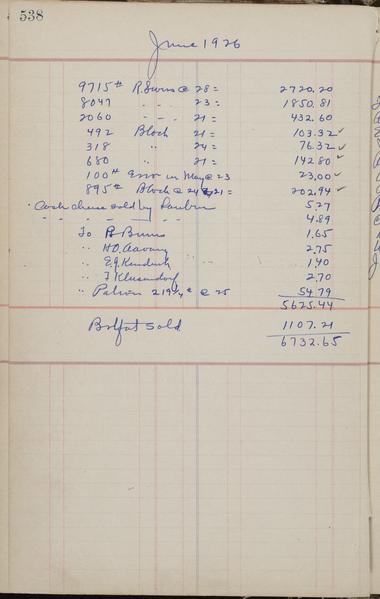 538
June 1926
9715# R. Swiss @ 28 = 2720.20
8047 " " " 23 = 1850.81
2060 " " 21 = 432.60
492 Block 21 = 103.32 ✓
318 " 24 = 76.32 ✓
680 " 21 = 142.80 ✓
100# Error in May @ 23 23.00 ✓
895# Block @ 24 & 21 = 202.94 ✓
Cash cheese sold by 5.27
" " " " 4.89
To B Burns 1.65
" H.O. Aavang 2.75
" E.G. Kundert 1.40
" F Klusendorf 2.70
" Patron 219 1/4 # @ 25 54.79
5625.44
sold 1107.21
6732.65